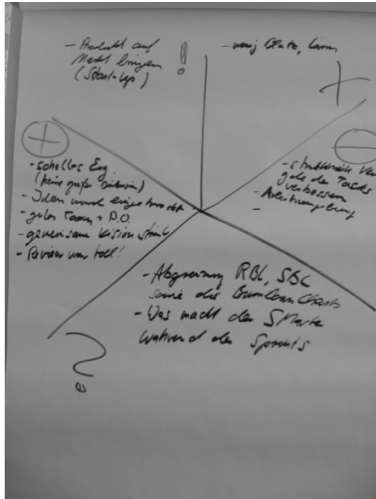 - Produkt auf
Markt bringen
(Start-Up)
!
- wenig Platz, Lärm
+
+
- schnelles Erg
(keine große Diskussion)
- Ideen wurde eingebracht
- gutes Team + P.O.
- gemeinsame Vision stimmt
- Review war toll!
-
- strukturierte Ver
gabe der Tasks
verbessern
-
- Abgrenzung RBL, SBL
sowie die Burndown Charts
- Was macht der SMaster
während des Sprints
?